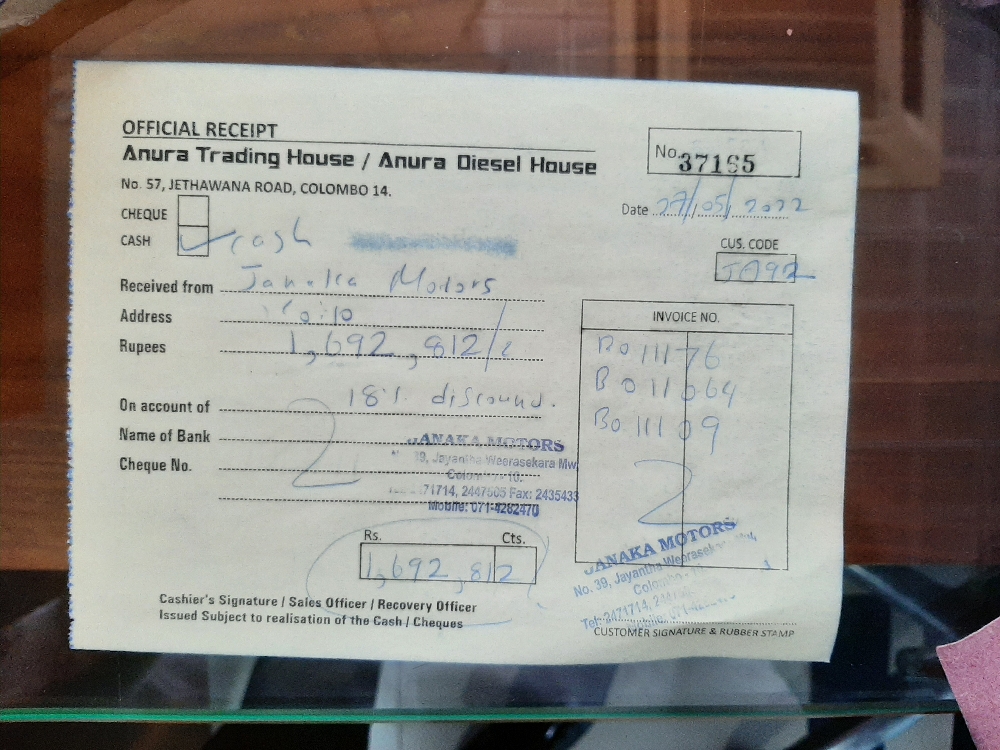 OFFICIAL RECEIPT
Anura Trading House / Anura Diesel House
No. 57, JETHAWANA ROAD, COLOMBO 14.
No. 37165
Date 27/05/2022
CHEQUE
CASH cash
CUS. CODE
JA92
Received from Janaka Motors
Address
Rupees 1,692,812/
On account of 18% discound.
Name of Bank
Cheque No.
INVOICE NO.
B011176
B011064
B011109
JANAKA MOTORS
39, Jayantha Weerasekara Mw,
Colombo - 10.
2471714, 2447505 Fax: 2435433
Mobile: 071-4262470
Rs. Cts.
1,692,812
JANAKA MOTORS
No. 39, Jayantha Weerasekara
Colombo
Tel: 2471714,
Cashier's Signature / Sales Officer / Recovery Officer
Issued Subject to realisation of the Cash / Cheques
CUSTOMER SIGNATURE & RUBBER STAMP